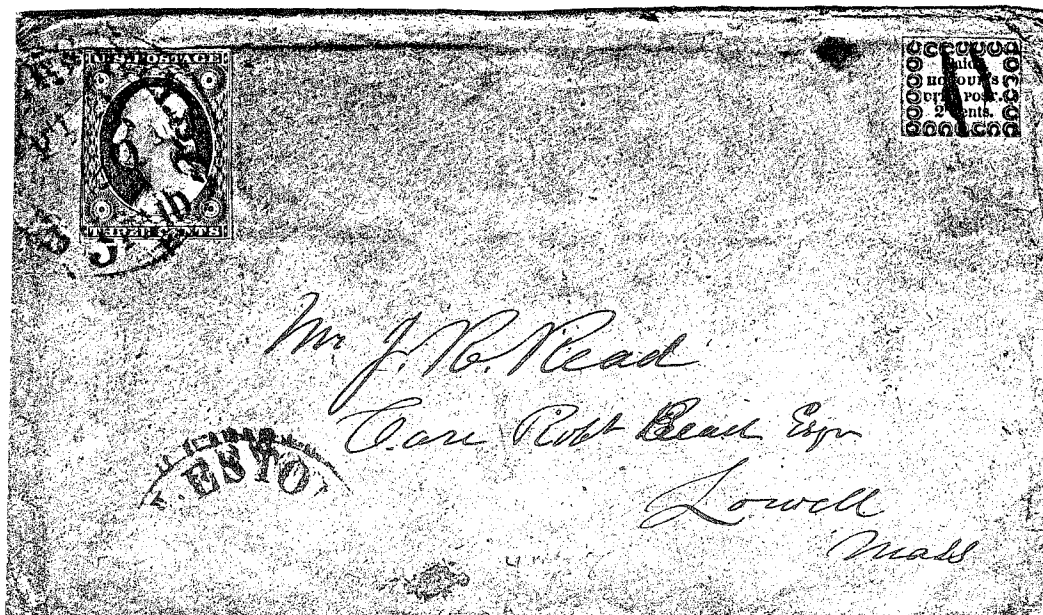 U.S. POSTAGE
THREE CENTS
Paid
HONOUR'S
CITY POST.
2 Cents.
Mr J. R. Read
Care Robt Beach Esqr
Lowell
Mass